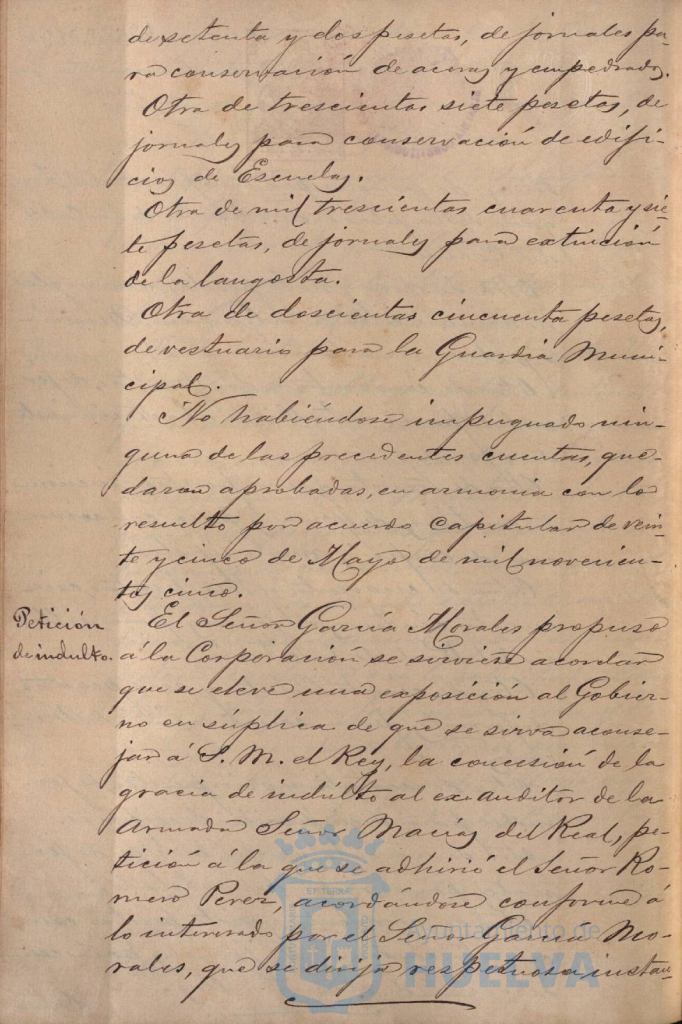 de setenta y dos pesetas, de jornales pa-
ra conservación de aceras y empedrados.
Otra de trescientas siete pesetas, de
jornales para conservación de edifi-
cios de Escuelas.
Otra de mil trescientas cuarenta y sie-
te pesetas, de jornales para extinción
de la langosta.
Otra de doscientas cincuenta pesetas,
de vestuario para la Guardia Muni-
cipal.
No habiéndose impugnado nin-
guna de las precedentes cuentas, que-
daron aprobadas, en armonia con lo
resuelto por acuerdo capitular de vein-
te y cinco de Mayo de mil novecien-
tos cinco.
Petición
de indulto.
El Señor García Morales propuso
á la Corporación se sirviese acordar
que se eleve una exposición al Gobier-
no en súplica de que se sirva aconse-
jar á S. M. el Rey, la concesión de la
gracia de indulto al ex-auditor de la
Armada Señor Macías del Real, pe-
tición á la que se adhirió el Señor Ro-
mero Perez, acordándose conforme á
lo interesado por el Señor García Mo-
rales, que se dirija respetuosa instan-
Ayuntamiento de
HUELVA